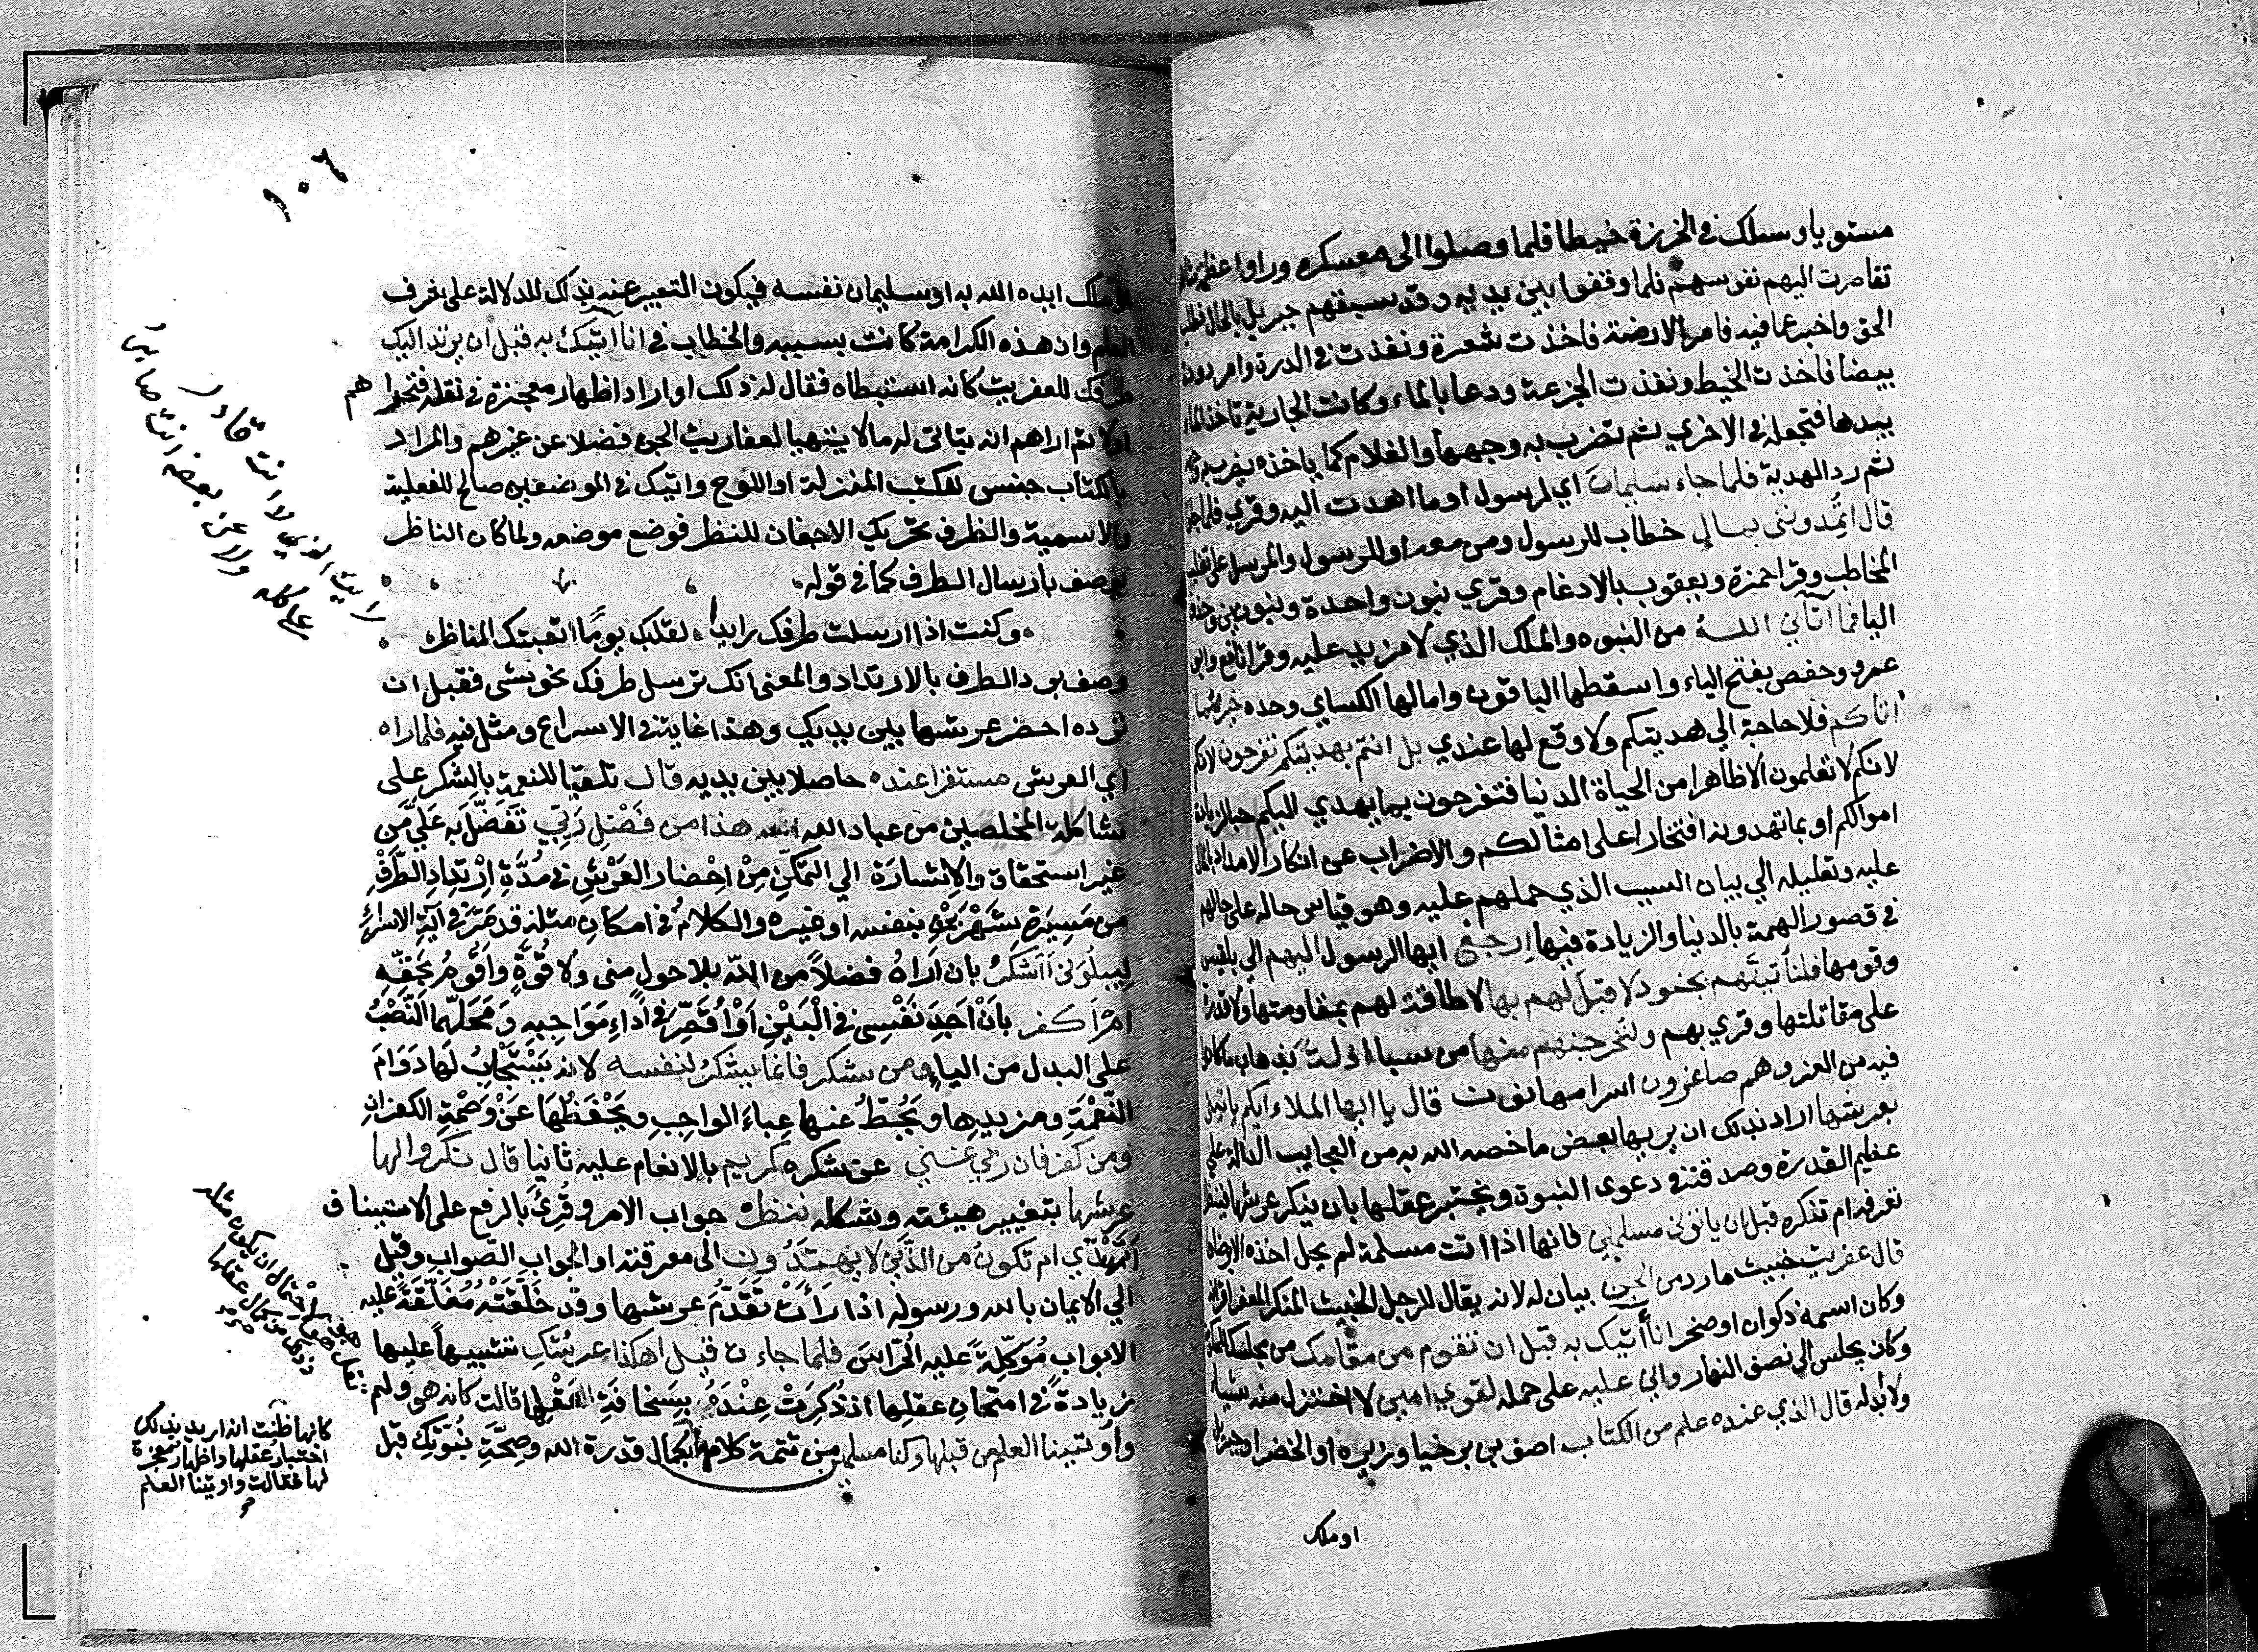 مستويا وسلك في الخرزة خيطا فلما وصلوا الى معسكره وراوا عظم شانه
تقاصرت اليهم نفوسهم فلما وقفوا بين يديه وقد سبقهم جبريل بالحال فطلب
الحق واخبر عما فيه فامر الارضة فاخذت شعرة ونفذت في الدرة وامر دودة
بيضا فاخذت الخيط ونفذت الجزعة ودعا بالماء وكانت الجارية تاخذ الماء
بيدها فتجعله في الاخرى ثم تضرب به وجهها والغلام كما ياخذه يضرب به وجهه
ثم رد الهدية فلما جاء سليمان اي الرسول او ما اهدت اليه وقري فلما جاوا
قال اتمدونني بمال خطاب للرسول ومن معه او للرسول والمرسل على تغليب
المخاطب وقرا حمزة ويعقوب بالادغام وقري بنون واحدة وبنونين وحذف
اليا فما آتاني الله من النبوه والملك الذي لا مزيد عليه وقرا نافع وابو
عمرو وحفص بفتح الياء واسقطها الباقون وامالها الكساي وحده خير مما
اتاكم فلا حاجة الي هديتكم ولا وقع لها عندي بل انتم بهديتكم تفرحون لانكم
لانكم لا تعلمون الا ظاهرا من الحياة الدنيا فتفرحون بما يهدي اليكم حبا لزيادة
اموالكم او بما تهدونه افتخارا على امثالكم والاضراب عن انكار الامداد بالمال
عليه وتقليله الي بيان السبب الذي حملهم عليه وهو قياس حاله على حالهم
في قصور الهمة بالدنيا والزيادة فيها ارجع ايها الرسول اليهم الي بلقيس
وقومها فلنأتينهم بجنود لا قبل لهم بها لا طاقة لهم بمقاومتها ولا قدرة
على مقاتلتها وقري بهم ولنخرجنهم منها من سبا اذلة بذهاب ما كانوا
فيه من العز وهم صاغرون اسرا مهانون قال يا ايها الملاء ايكم ياتيني
بعرشها اراد بذلك ان يريها بعض ما خصه الله به من العجايب الدالة على
عظيم القدرة وصدقه في دعوى النبوة ويختبر عقلها بان ينكر عرشها فينظر
تعرفه ام تنكره قبل ان ياتوني مسلمين فانها اذا اتت مسلمة لم يحل اخذه الا برضاها
قال عفريت خبيث مارد من الجن بيان له لانه يقال للرجل الخبيث المنكر المعفر اقرانه
وكان اسمه ذكوان او صخر انا أتيك به قبل ان تقوم من مقامك من مجلسك للحكومة
وكان يجلس الي نصف النهار واني عليه على حمله لقوي امين لا اختزل منه شيا
ولا ابدله قال الذي عنده علم من الكتاب اصف بن برخيا وزيره او الخضر او جبريل
او ملك
١٠٦
او ملك ايده الله به او سليمان نفسه فيكون التعبير عنه بذلك للدلالة على شرف
العلم وان هذه الكرامة كانت بسببه والخطاب في انا اتيك به قبل ان يرتد اليك
طرفك للعفريت كانه استبطاه فقال له ذلك او اراد اظهار معجزة في نقله فتحداهم
اولا ثم اراهم انه يتاتى له ما لا يتهيا لعفاريت الجن فضلا عن غيرهم والمراد
بالكتاب جنس الكتب المنزلة او اللوح واتيك في الموضعين صالح للفعلية
والاسمية والطرف تحريك الاجفان للنظر فوضع موضعه ولما كان الناظر
يوصف بارسال الطرف كما في قوله
وكنت اذا ارسلت طرفك رايدا لقلبك يوما اتعبتك المناظر
رايت الذي لا انت قادر
على كله ولا عن بعضه انت صابر
وصف برد الطرف بالارتداد والمعنى انك ترسل طرفك نحو شى فقبل ان
ترده احضر عرشها بين يديك وهذا غاية في الاسراع ومثل فيه فلما راه
اي العرش مستقرا عنده حاصلا بين يديه قال تلقيا للنعمة بالشكر على
شاكلة المخلصين من عباد الله هذا من فضل ربي تفضل به علي من
غير استحقاق والاشارة الي التمكن من احضار العرش في مدة ارتداد الطرف
من مسيرة شهرين بنفسه او غيره والكلام في امكان مثله قد مر في آية الاسراء
ليبلوني أاشكر بان اراه فضلا من الله بلا حول مني ولا قوة واقوم بحقه
ام اكفر بان اجد نفسي في البين او اقصر في اداء مواجبه ومحلهما النصب
على البدل من الياء ومن شكر فانما يشكر لنفسه لانه يستجلب لها دوام
النعمة ومزيدها ويحط عنها عباء الواجب ويحفظها عن وصمة الكفران
ومن كفر فان ربي غني عن شكره كريم بالانعام عليه ثانيا قال نكروا لها
عرشها بتغيير هيئته وشكله ننظر جواب الامر وقرئ بالرفع على الاستيناف
اتهتدي ام تكون من الذين لا يهتدون الى معرفته او الجواب الصواب وقيل
الي الايمان بالله ورسوله اذا رات تقدم عرشها وقد خلفته مغلقة عليه
الابواب موكلة عليه الحراس فلما جاءت قيل اهكذا عرشك تشبيها عليها
زيادة في امتحان عقلها اذ ذكرت عنده بسخافة العقل قالت كانه هو ولم
تقل هو هو لاحتمال ان يكون مثله
وذلك من كمال عقلها
واوتينا العلم من قبلها وكنا مسلمين من تتمة كلامها بكمال قدرة الله وصحة نبوتك قبل
كانها ظنت انه اريد بذلك
اختبار عقلها واظهار معجزة
لها فقالت واوتينا العلم